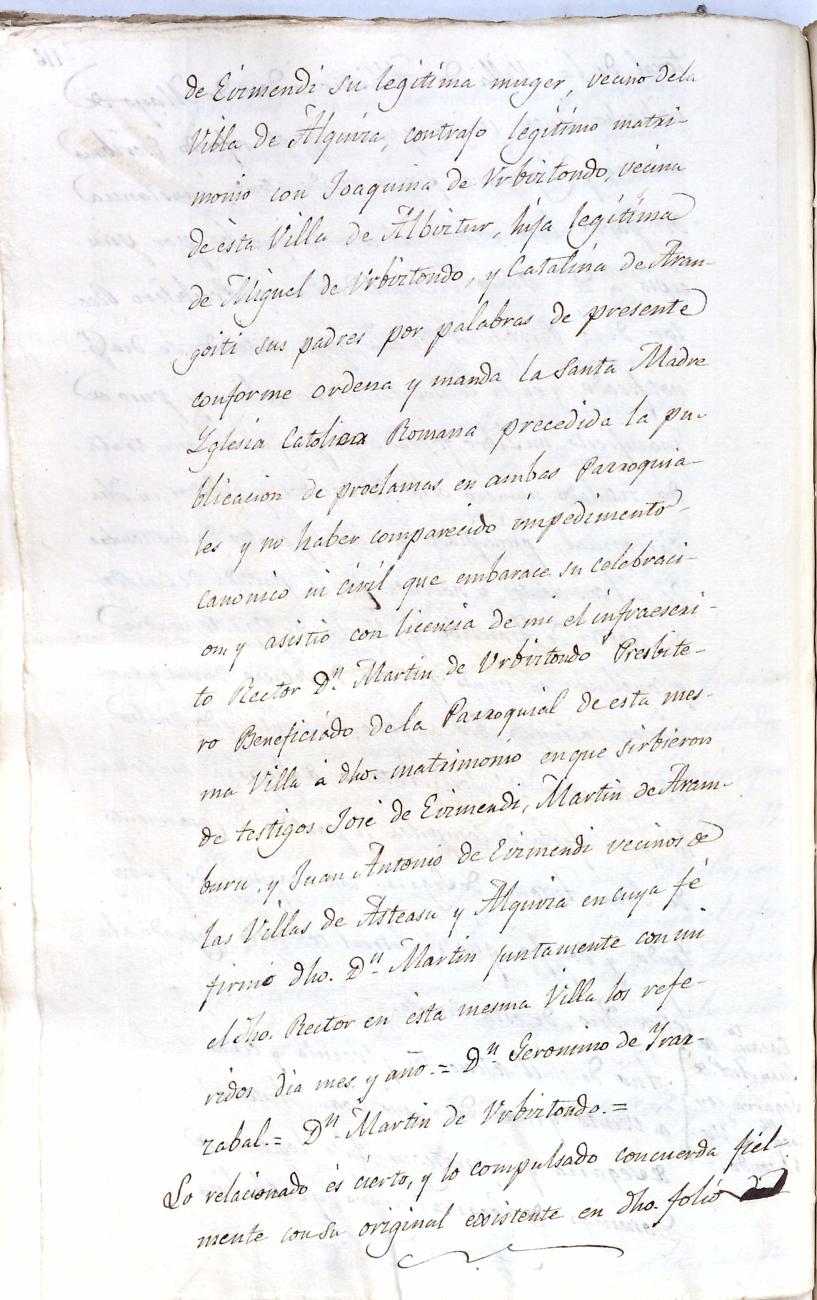 de Eizmendi su legitima muger, vecino dela
Villa de Alquiza, contrajo legitimo matri-
monio con Joaquina de Vrbiztondo, vecina
de ésta Villa de Albiztur, hija legitima
de Miguel de Vrbiztondo, y Catalina de Aran-
goiti sus padres por palabras de presente
conforme ordena y manda la Santa Madre
Yglesia Catolica Romana precedida la pu-
blicacion de proclamas en ambas Parroquia-
les y no haber comparecido impedimento
canonico ni civil que embarace su celebraci-
on y asistió con licencia de mi el infraescri-
to Rector Dn. Martin de Vrbiztondo Presbite-
ro Beneficiado de la Parroquial de esta mes-
ma Villa á dho. matrimonio en que sirbieron
de testigos José de Eizmendi, Martin de Aram-
buru, y Juan Antonio de Eizmendi vecinos de
las Villas de Asteasu y Alquiza en cuya fé
firmó dho. Dn. Martin juntamente con mi
el dho. Rector en ésta mesma Villa los refe-
ridos dia mes, y año.= Dn. Geronimo de Yraz-
zabal.= Dn. Martin de Vrbiztondo.=
Lo relacionado és cierto, y lo compulsado concuerda fiel-
mente con su original existente en dho. folio